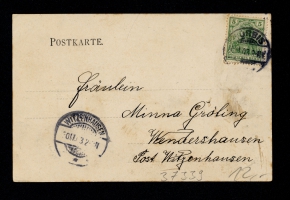 POSTKARTE.
5 5
Fräulein
Minna Gröling
WITZENHAUSEN
Wendershausen
Post Witzenhausen
37339